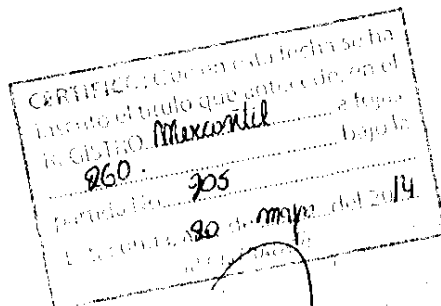 CERTIFICO: Que en esta fecha se ha
inscrito el título que antecede, en el
REGISTRO Mercantil a fojas
260. bajo la
partida No. 205
20 de mayo del 2014